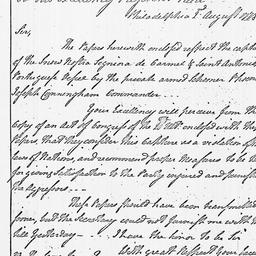 Philadelphia 1st August 1778
Sir,
The Papers herewith enclosed respect the capture
of the Snow Nostra Signina de Carmel & Saint Antonio
Portuguese Vessel by the private armed Schooner Phoenix
Joseph Cunningham Commander
Your Excellency will perceive from the
Copy of an act of Congress of the Ult. enclosed with the
Papers, that they consider this capture as a violation of the
laws of Nations, and recommend proper Measures to be taken
for giving satisfaction to the Party injured and punishing
the Aggressors
These Papers should have been transmitted
sooner, but the Secretary could not furnish me with them
till Yesterday I have the honor to be Sir
With great respect Your